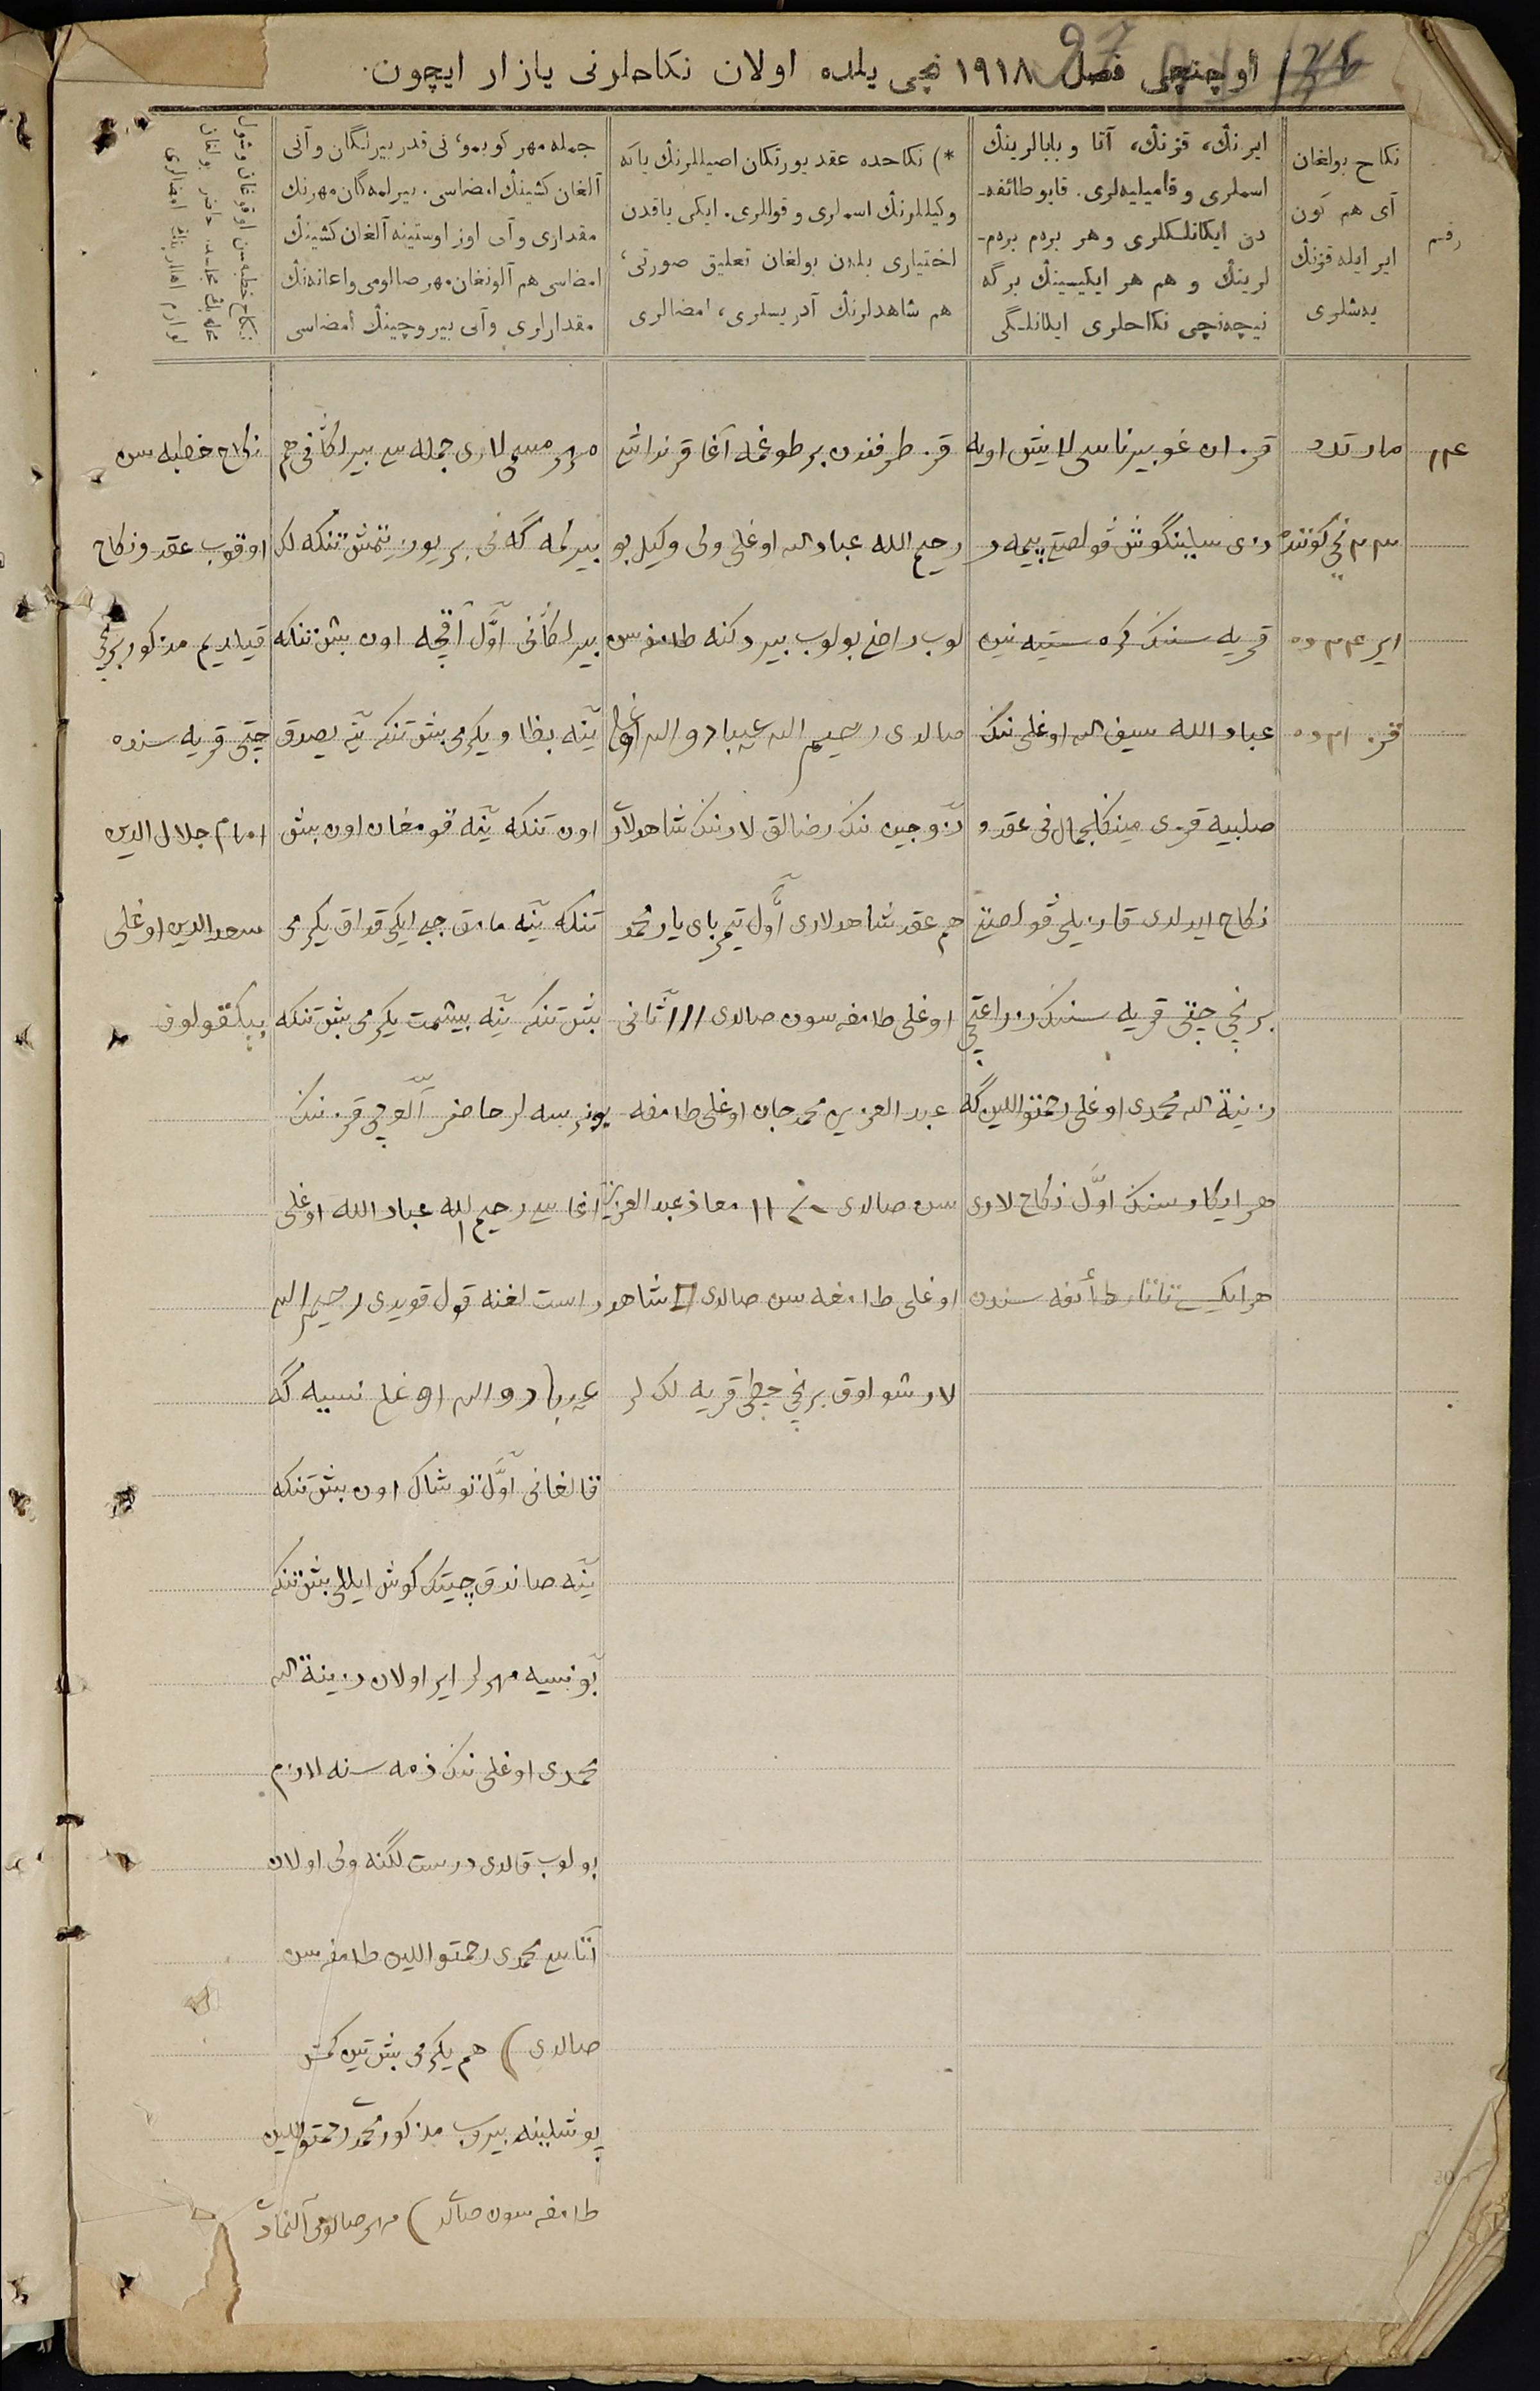 اوچنچی فصل ١٩١٨ نچی یلده اولان نکاحلرنی یازار ایچون.
رقم
نکاح بولغان
آی هم کون
ایر ایله قزنڭ
یەشلری
ایرنڭ، قزنڭ، آتا و بابالرینڭ
اسملری و فامیلیەلری. قایو طائفه‌ـ
دن ایکانلکلری و هر بردم بردم‌ـ
لرینڭ و هم هر ایکیسینڭ برگه
نیچه‌نچی نکاحلری ایکانلـگی
*) نکاحده عقد یورتکان اصیللرنڭ یاکه
وکیللرنڭ اسملری و قوللری. ایکی یاقدن
اختیاری بلەن بولغان تعلیق صورتی،
هم شاهدلرنڭ آدریسلری، امضالری
جمله مهر کوبمو، نی قدر بیرلگان و آنی
آلغان کشینڭ امضاسی. بیرلمەگان مهرنڭ
مقداری و آنی اوز اوستینه آلغان کشینڭ
امضاسی هم آلونغان مهر صالومی و اعانەنڭ
مقدارلری و آنی بیروچینڭ امضاسی
مارتده
٢٣ نچی کوننده
ایر ٢٤ ده
قز ٢١ ده
قزان غوبیرناسی لایش اویه
زی سابنگوش ڤولصتی بیمەر
قریه سنڭ کره ستیه نین
عباد الله سیف الله اوغلی ننڭ
صلبیه قزی مینکلجمال نی عقد و
نکاح ایدلدی قارییلی ڤولصتی
برنچی چتی قریه سنڭ زراعتچی
زینة الله محمدی اوغلی رحمتواللین گه
هر ایکاوسنڭ اوّل نکاح لاری
هر ایکیسی تاتار طائفه سندن
قز طرفندن بر طوغمه آغا قرنداشی
رحیم الله عباد الله اوغلی ولی وکیل بو
لوب راضی بولوب بیردکنه طامغه سن
صالدی رحیم الله عیبادوالله اوغلی
زوجین ننڭ رضالق لارننڭ شاهدلاری
هم عقد شاهدلاری اوّل تیمربای یارمحمد
اوغلی طامغه سون صالدی ||| ثانی
عبد العزیز محمدجان اوغلی طامغه
سن صالدی معاذ عبد العزیز
اوغلی طامغه سن صالدی شاهد
لار شو اوق برنچی چطی قریه لک لر
مهر مسمی لاری جمله سی بیرلکانی هم
بیرلمه گه نی بر یوز یتمش تنکه لک
بیرلکانی اوّل آقچه اون بش تنکه
ینه بظاو یکرمی بش تنکه ینه یصدق
اون تنکه ینه قومغان اون بش
تنکه ینه مامق جب ایکی قداق یکرمی
بش تنکه ینه بیشمت یکرمی بش تنکه
بو نرسه لر حاضر آلوچی قز ننڭ
آغاسی رحیم الله عباد الله اوغلی
راست لغنه قول قویدی رحیم الله
عیبادوالله اوغلی نسیه گه
قالغانی اوّل توشاک اون بش تنکه
ینه صاندق چیتک کوش ایللی بش تنکه
بو نسیه مهرلر ایر اولان زینة الله
محمدی اوغلی ننڭ ذمه سنه لازم
بولوب قالدی درست لگنه ولی اولان
آتاسی محمدی رحمتواللین طامغه سن
صالدی ) هم یکرمی بش تین کمش
پوشلینه بیروب مذکور محمدی رحمتواللین
طامغه سون صالدی ) مهر صالومی آلنمادی
نکاح خطبه سن
اوقوب عقد و نکاح
قیلدیم مذکور برنچی
چتی قریه سنده
امام جلال الدین
سعد الدین اوغلی
بیکقولوف